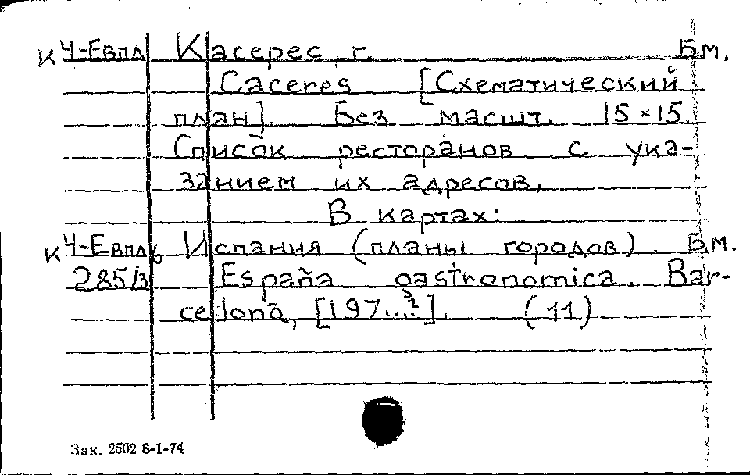 К Ч-Евпл Касерес г. Б.м.
Caceres [Схематический
план]. Без масшт. 15×15.
Список ресторанов с ука-
занием их адресов.
В картах:
К Ч-Евпл, Испания (планы городов). Б.м.
2.85/3 España gastronomica. Bar-
celona, [197...?]. (11)
Зак. 2502 8-I-74